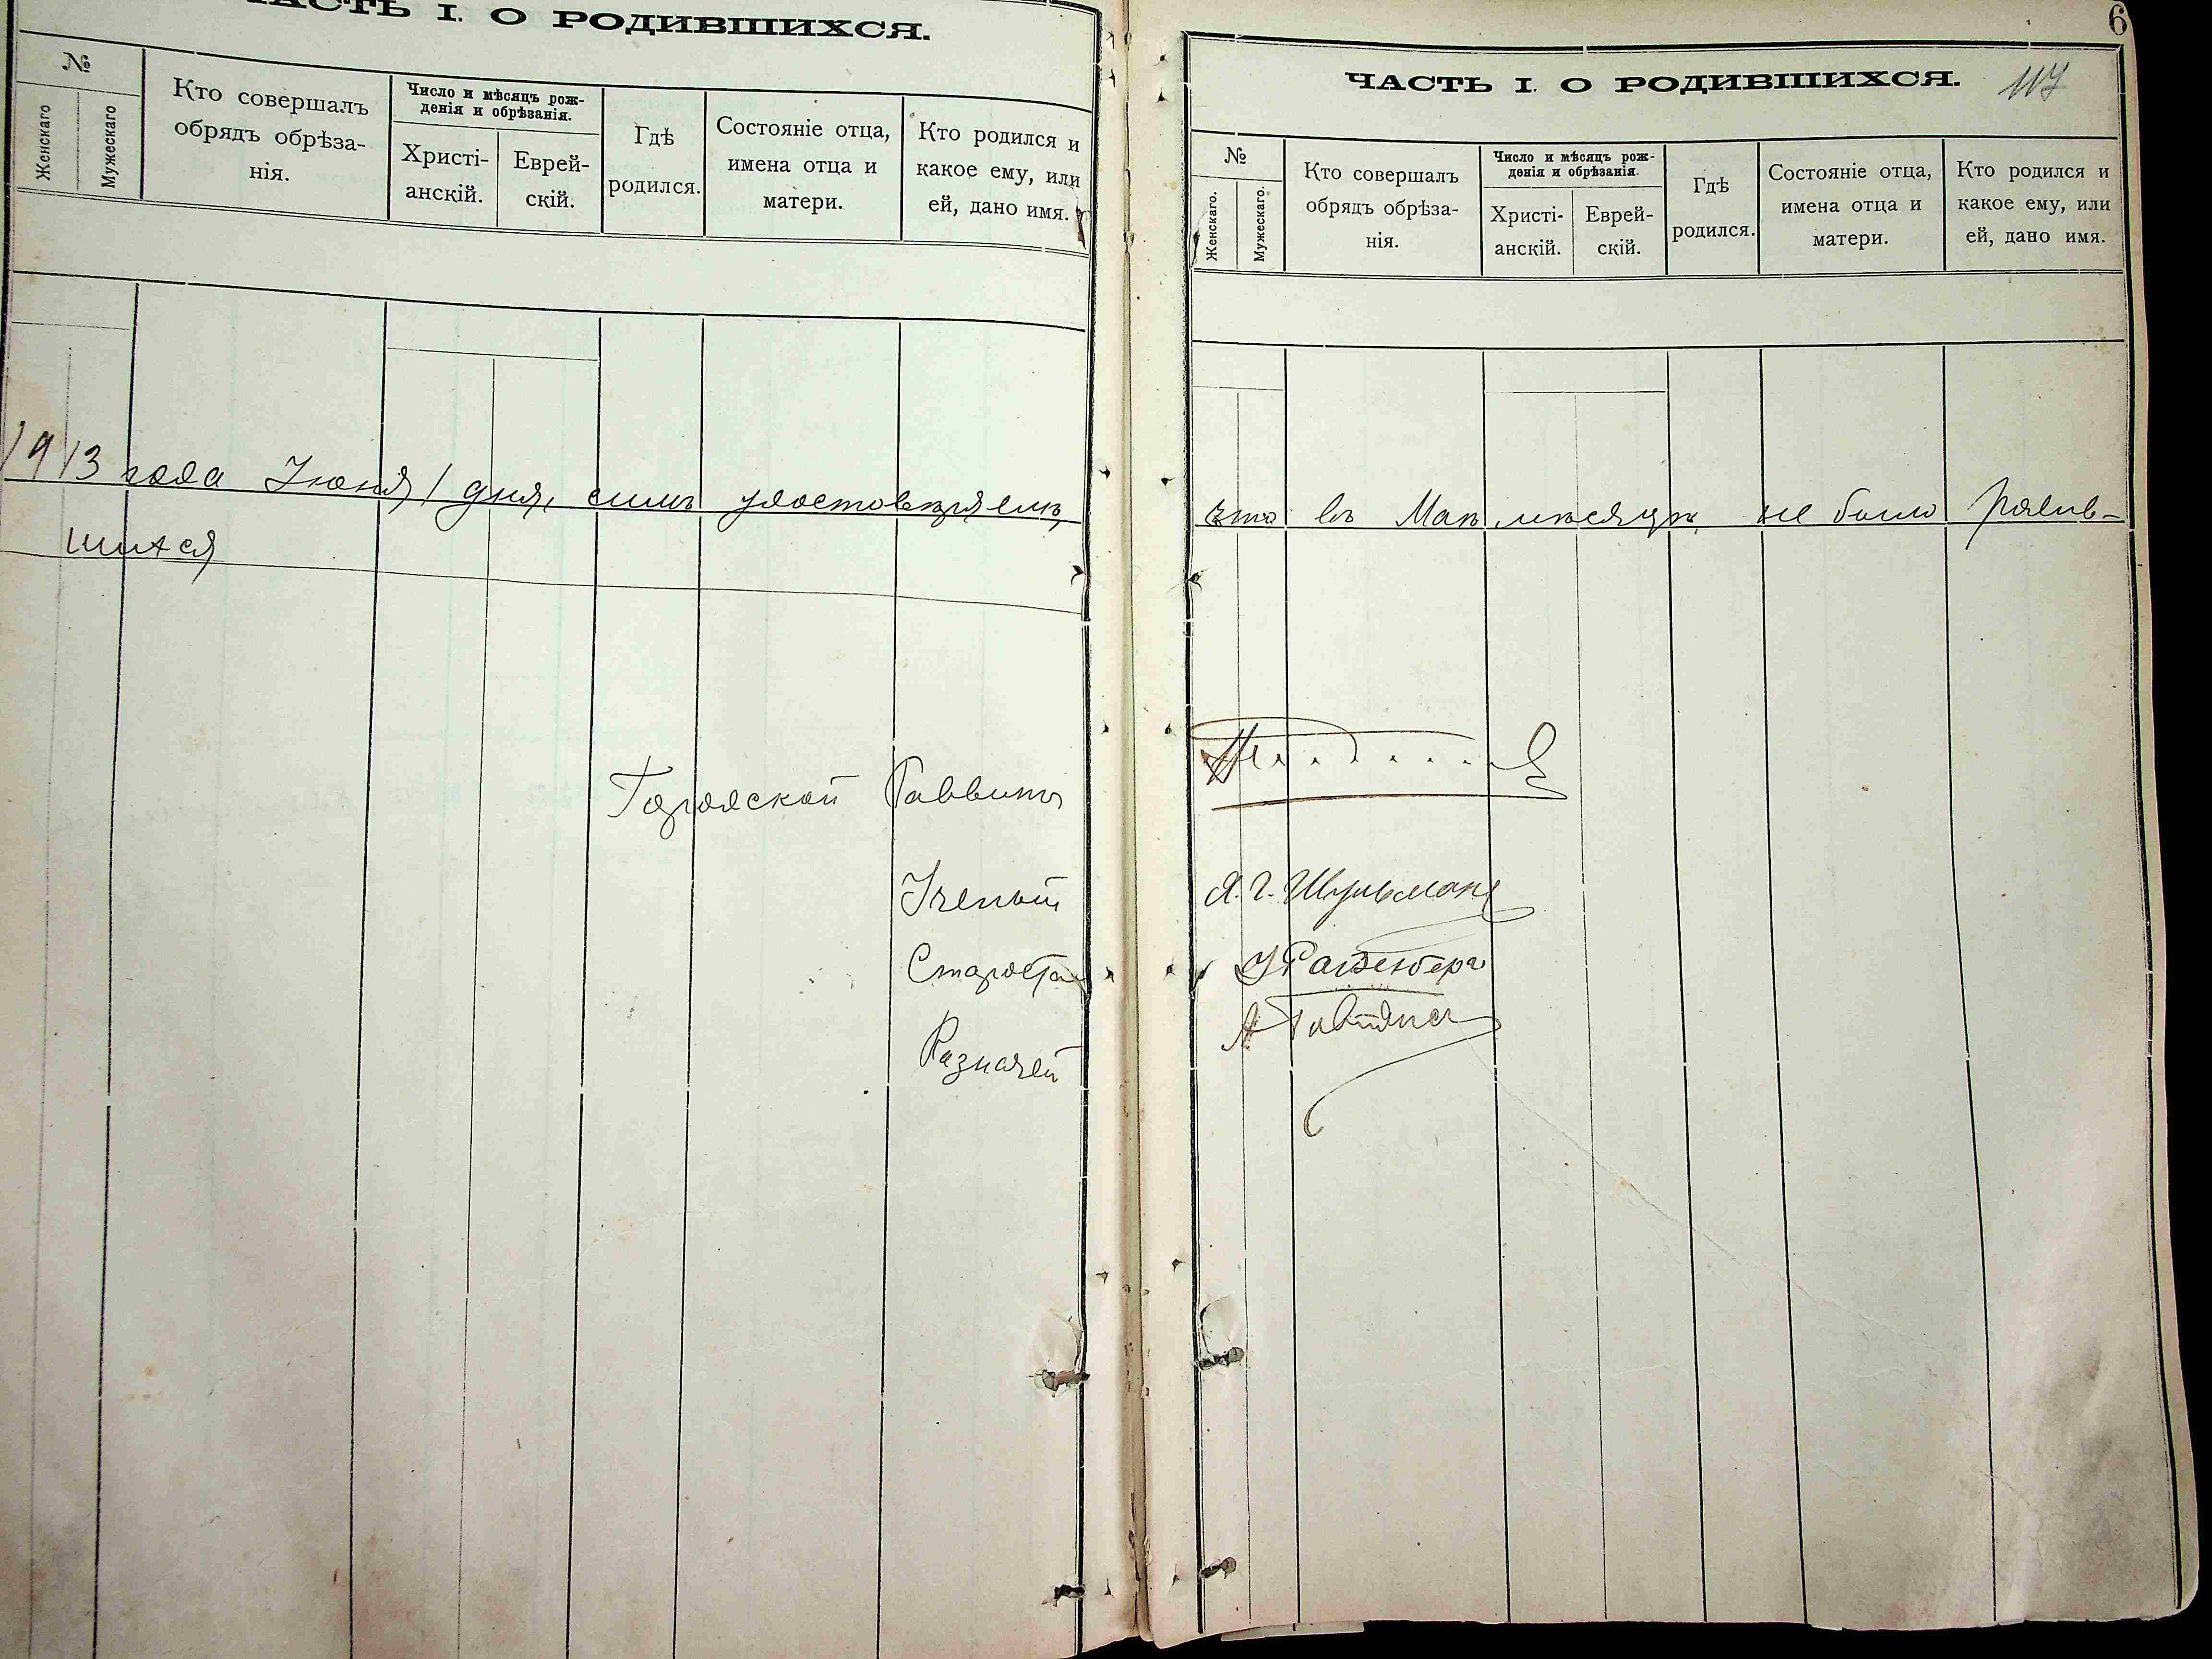 ЧАСТЬ I. О РОДИВШИХСЯ.
№
Женскаго
Мужескаго
Кто совершалъ
обрядъ обрѣза-
нія.
Число и мѣсяцъ рож-
денія и обрѣзанія.
Христі-
анскій.
Еврей-
скій.
Гдѣ
родился.
Состояніе отца,
имена отца и
матери.
Кто родился и
какое ему, или
ей, дано имя.
1913 года Іюня 1 дня, симъ удостовѣряемъ,
шихся
Городской Раввинъ
Ученый
Староста
Казначей
6
ЧАСТЬ I. О РОДИВШИХСЯ.
117
№
Женскаго.
Мужескаго.
Кто совершалъ
обрядъ обрѣза-
нія.
Число и мѣсяцъ рож-
денія и обрѣзанія.
Христі-
анскій.
Еврей-
скій.
Гдѣ
родился.
Состояніе отца,
имена отца и
матери.
Кто родился и
какое ему, или
ей, дано имя.
что въ Маѣ мѣсяцѣ не было родив-
Я. Г. Шульманъ